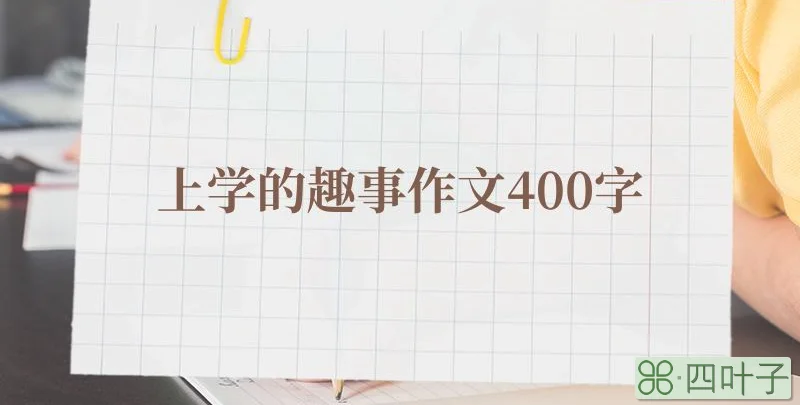 上学的趣事作文400字
⌘·四叶子